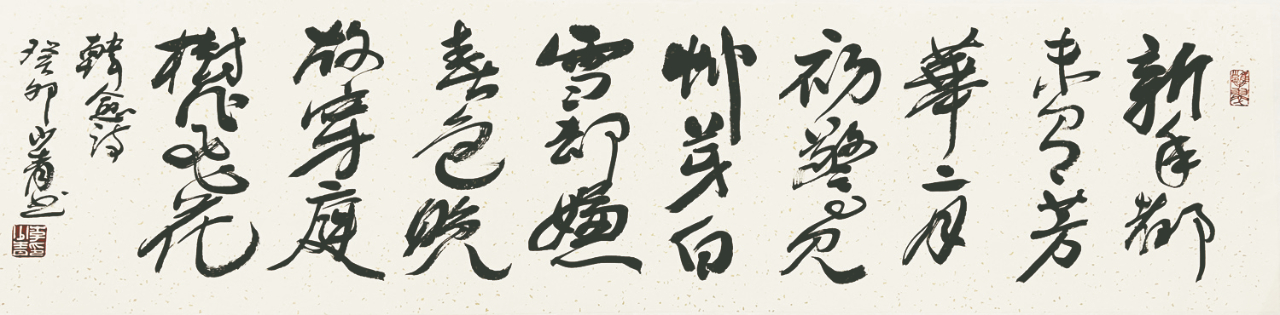 新年都
未有芳
華二月
初驚見
草芽白
雪却嫌
春色晚
故穿庭
樹作飛花
韓愈詩
癸卯山青书